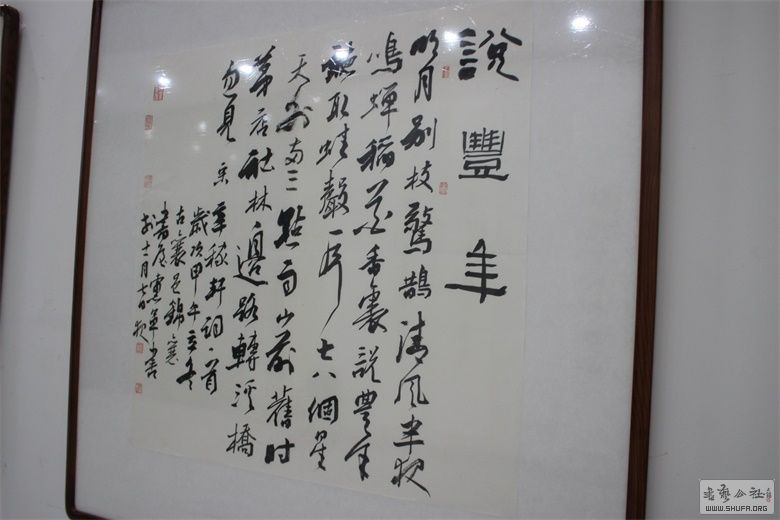 說豐年
明月别枝驚鵲清風半夜
鳴蟬稻花香裏說豐年
聽取蛙聲一片七八個星
天外兩三點雨山前舊時
茅店社林邊路轉溪橋
忽見 宋
辛稼軒詞一首
歲次甲午立冬
古襄邑錦襄
書屋憲英書
於十一月
書藝公社
WWW.SHUFA.ORG